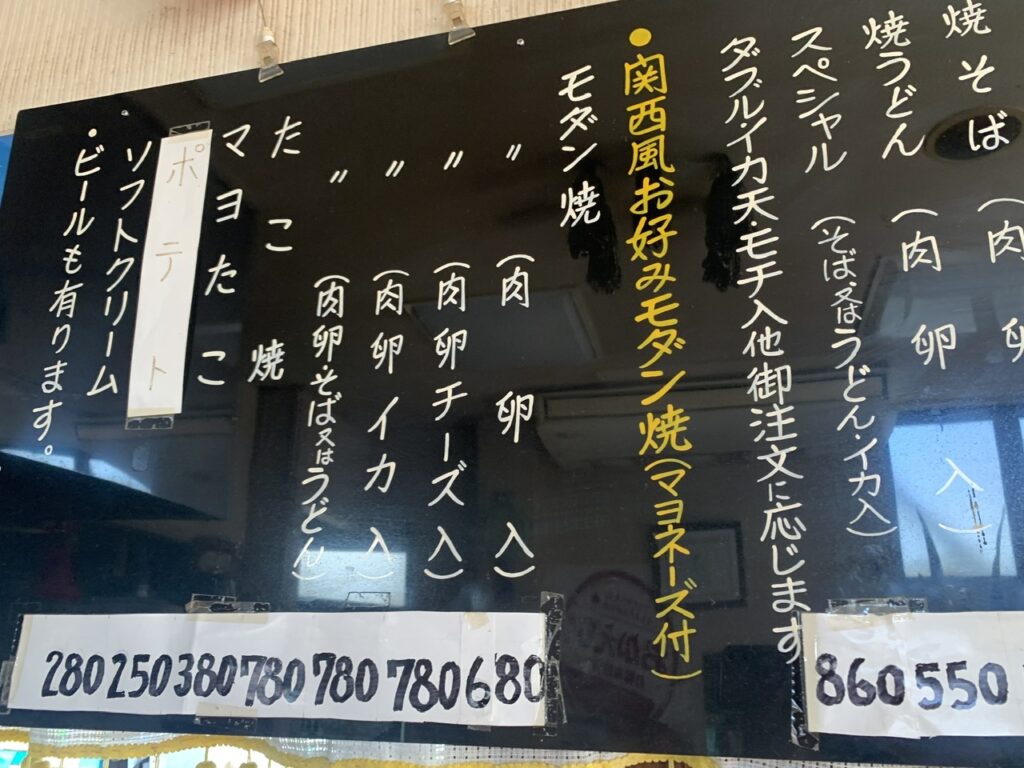 焼そば (肉 卵
焼うどん (肉 卵 入)
スペシャル (そば又はうどん・イカ入)
ダブル・イカ天・モチ入他御注文に応じます
●関西風お好みモダン焼(マヨネーズ付)
モダン焼
〃 (肉 卵 入)
〃 (肉卵チーズ入)
〃 (肉卵イカ入)
〃 (肉卵・そば又はうどん)
たこ焼
マヨたこ
ポテト
ソフトクリーム
・ビールも有ります。
860 550
280 250 380 780 780 780 680